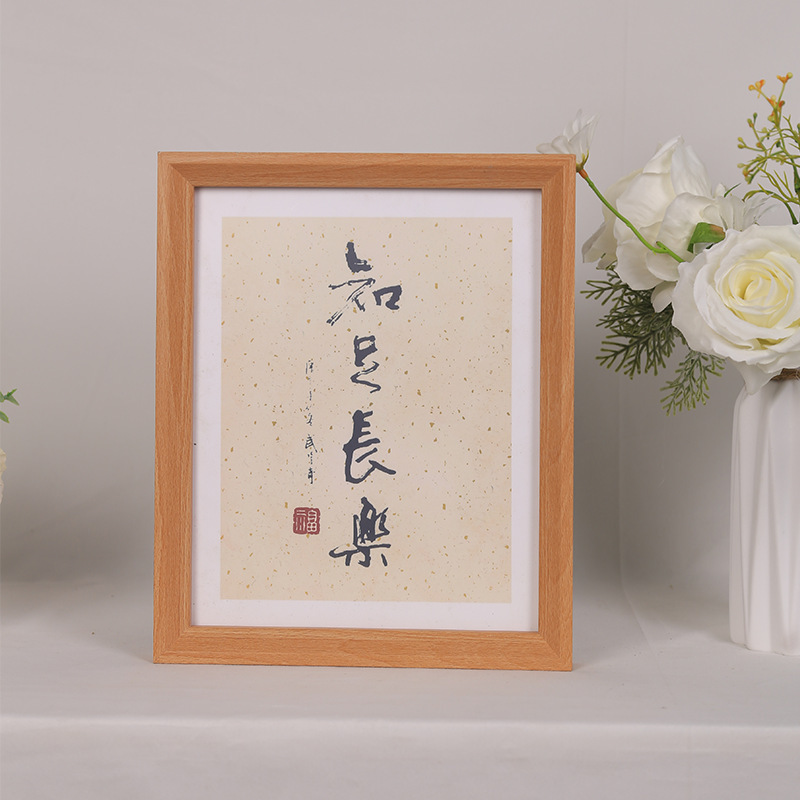 知足長樂
福